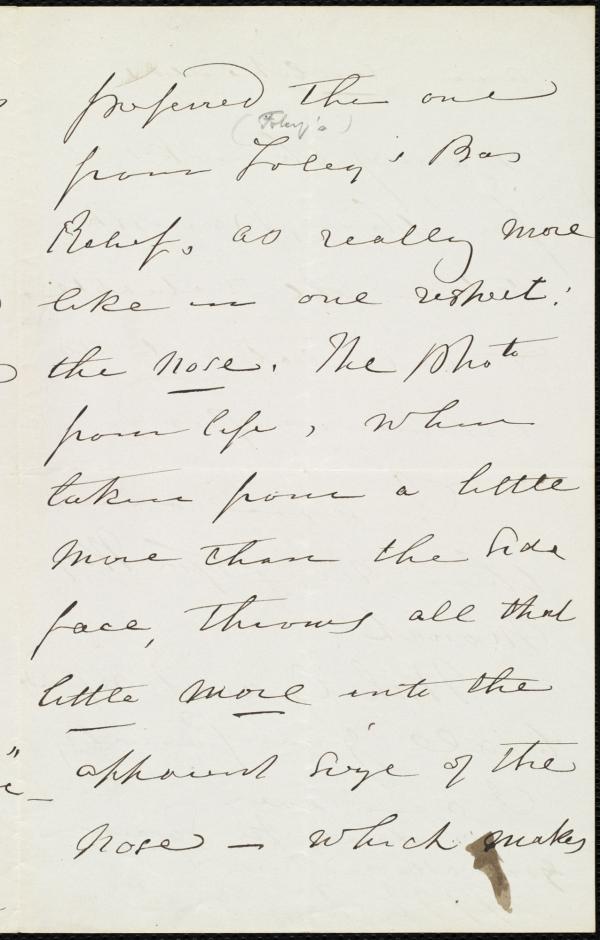 preferred the one
(Foley's)
from Foley's Bas
Relief, as really more
like in one respect:
the nose. The photo
from life, when
taken from a little
more than the side
face, throws all that
little more into the
apparent size of the
nose — which makes